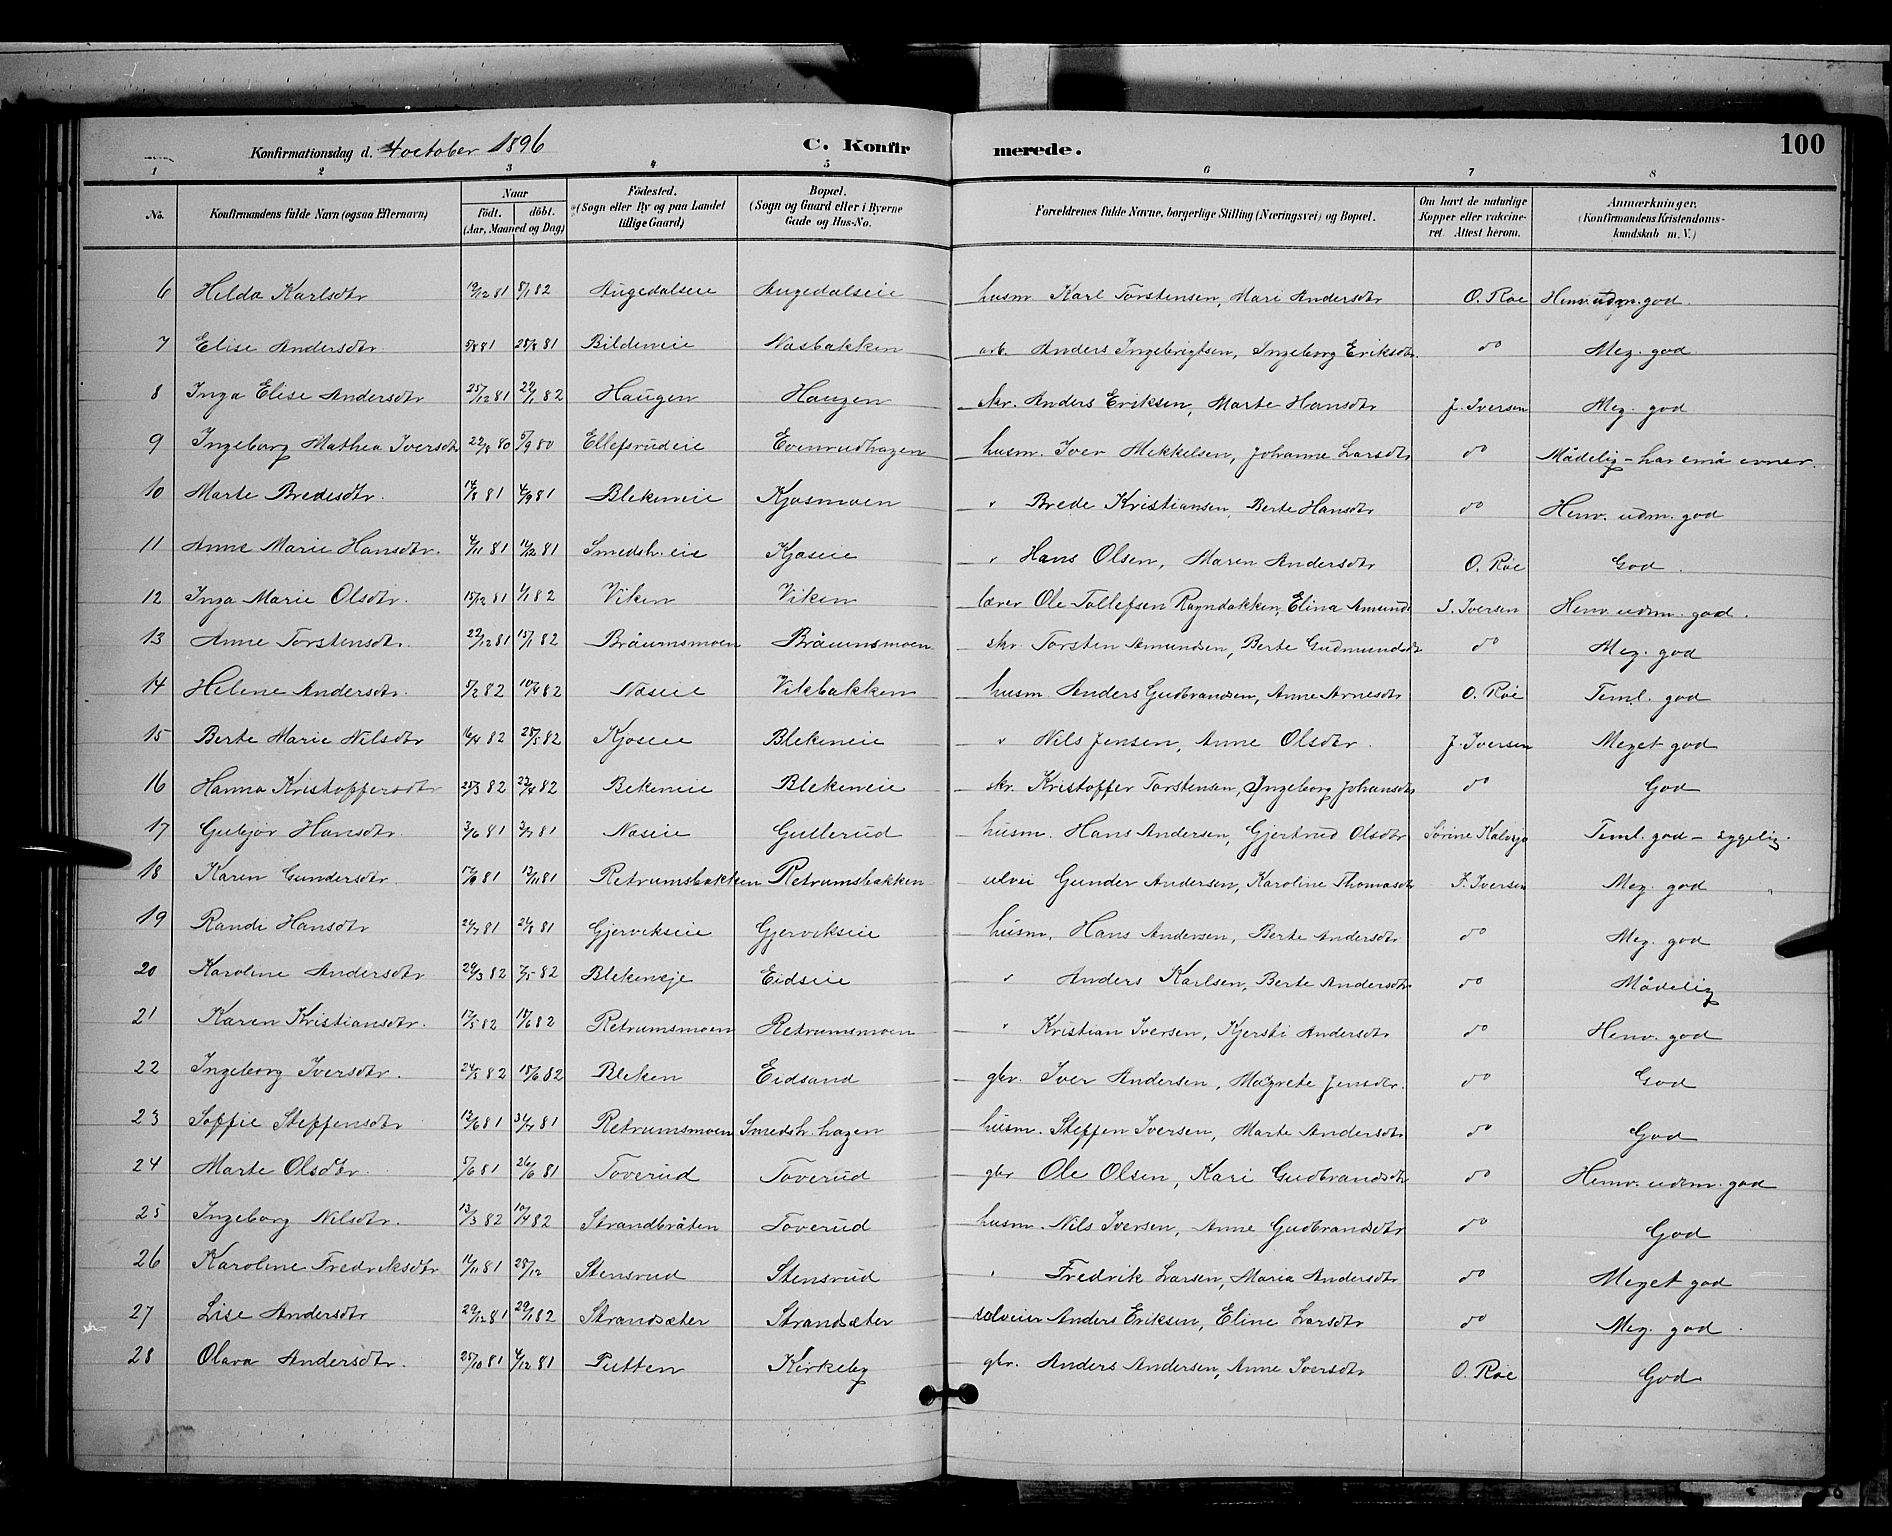 Konfirmationsdag d. 4 october 1896 C. Konfirmerede. 100
1 2 3 4 5 6 7 8
No. Konfirmandens fulde Navn (ogsaa Efternavn) Naar födt. döbt. (Aar, Maaned og Dag) Födested. (Sogn eller By og paa Landet tillige Gaard) Bopæl. (Sogn og Gaard eller i Byerne Gade og Hus-No. Forældrenes fulde Navne, borgerlige Stilling (Næringsvei) og Bopæl. Om havt de naturlige Kopper eller vakcineret. Attest herom. Anmærkninger. (Konfirmandens Kristendomskundskab m. V.)
6 Hilda Karlsdtr 19/12 81 8/1 82 Augedalseie Augedalseie husm. Karl Torstensen, Mari Andersdtr O. Røe Henv. udm. god.
7 Elise Andersdtr 5/8 81 28/8 81 Bildeneie Næsbakken arb. Anders Ingebrigtsen, Ingeborg Eriksdtr. do Meg. god
8 Inga Elise Andersdtr 25/12 81 22/1 82 Haugen Haugen skr. Anders Eriksen, Marte Hansdtr J. Iversen Meg. god
9 Ingeborg Mathea Iversdtr 22/8 80 5/9 80 Ellefsrudeie Evenrudhagen husm. Iver Mikkelsen, Johanne Larsdtr do Mådelig - har små evner.
10 Marte Bredesdtr. 14/8 81 4/9 81 Blekeneie Kjosmoen " Brede Kristiansen, Berte Hansdtr do Henv. udm. god
11 Anne Marie Hansdtr. 4/11 81 11/12 81 Smedsh. eie Kjoseie " Hans Olsen, Maren Andersdtr O. Røe God.
12 Inga Marie Olsdtr. 15/12 81 6/1 82 Viken Viken lærer Ole Tollefsen Ragndakken, Elina Amunds J. Iversen Henv. udm. god.
13 Anne Torstensdtr. 22/12 81 15/1 82 Bråumsmoen Bråumsmoen skr. Torsten Amundsen, Berte Gudmundsdtr do Meg. god
14 Helene Andersdtr. 5/2 82 10/4 82 Næseie Vikbakken husm Anders Gudbrandsen, Anne Arnesdtr O. Røe Teml. god
15 Berte Marie Nilsdtr 16/4 82 28/5 82 Kjoseie Blekeneie " Nils Jensen, Anne Olsdtr. J. Iversen Meget god
16 Hanna Kristoffersdtr 25/3 82 23/4 82 Bekeneie Blekeneie skr. Kristoffer Torstensen, Ingeborg Johansdtr do God
17 Gubjør Hansdtr. 3/6 81 3/7 81 Næseie Gullerud husm. Hans Andersen, Gjertrud Olsdtr Sørine Kalvsjø Teml. god - sygelig.
18 Karen Gundersdtr. 81 13/11 81 Retrumsbakken Retrumsbakken selvei Gunder Andersen, Karoline Thomasdtr J. Iversen Meg. god
19 Randi Hansdtr 24/7 81 21/8 81 Gjervikseie Gjervikseie husm. Hans Andersen, Berte Andersdtr do Meg. god
20 Karoline Andersdtr 29/3 82 7/5 82 Blekeneje Eidseie " Anders Karlsen, Berte Andersdtr do Mådelig
21 Karen Kristiansdtr. 17/5 82 18/6 82 Retrumsmoen Retrumsmoen " Kristian Iversen, Kjersti Andersdtr do Henv. god
22 Ingeborg Iversdtr. 24/5 82 18/6 82 Bleken Eidsand gbr. Iver Andersen, Magrete Jensdtr. do God
23 Soffie Steffensdtr 12/6 81 31/7 81 Retrumsmoen Smedsh. hagen husm. Steffen Iversen, Marte Andersdtr do God
24 Marte Olsdtr. 5/6 81 26/6 81 Toverud Toverud gbr Ole Olsen, Kari Gudbrandsdtr do Henv. udm. god
25 Ingeborg Nilsdtr. 13/3 82 10/4 82 Strandbråten Toverud husm. Nils Iversen, Anne Gudbrandsdtr do God
26 Karoline Fredriksdtr 14/11 81 28/12 Stensrud Stensrud " Fredrik Larsen, Maria Andersdtr do Meget god
27 Lise Andersdtr 29/12 81 29/1 82 Strandsæter Strandsæter selveier Anders Eriksen, Eline Larsdtr do Meg. god.
28 Olava Andersdtr. 25/10 81 4/12 81 Putten Kirkeby gbr. Anders Andersen, Anne Iversdtr O. Røe God